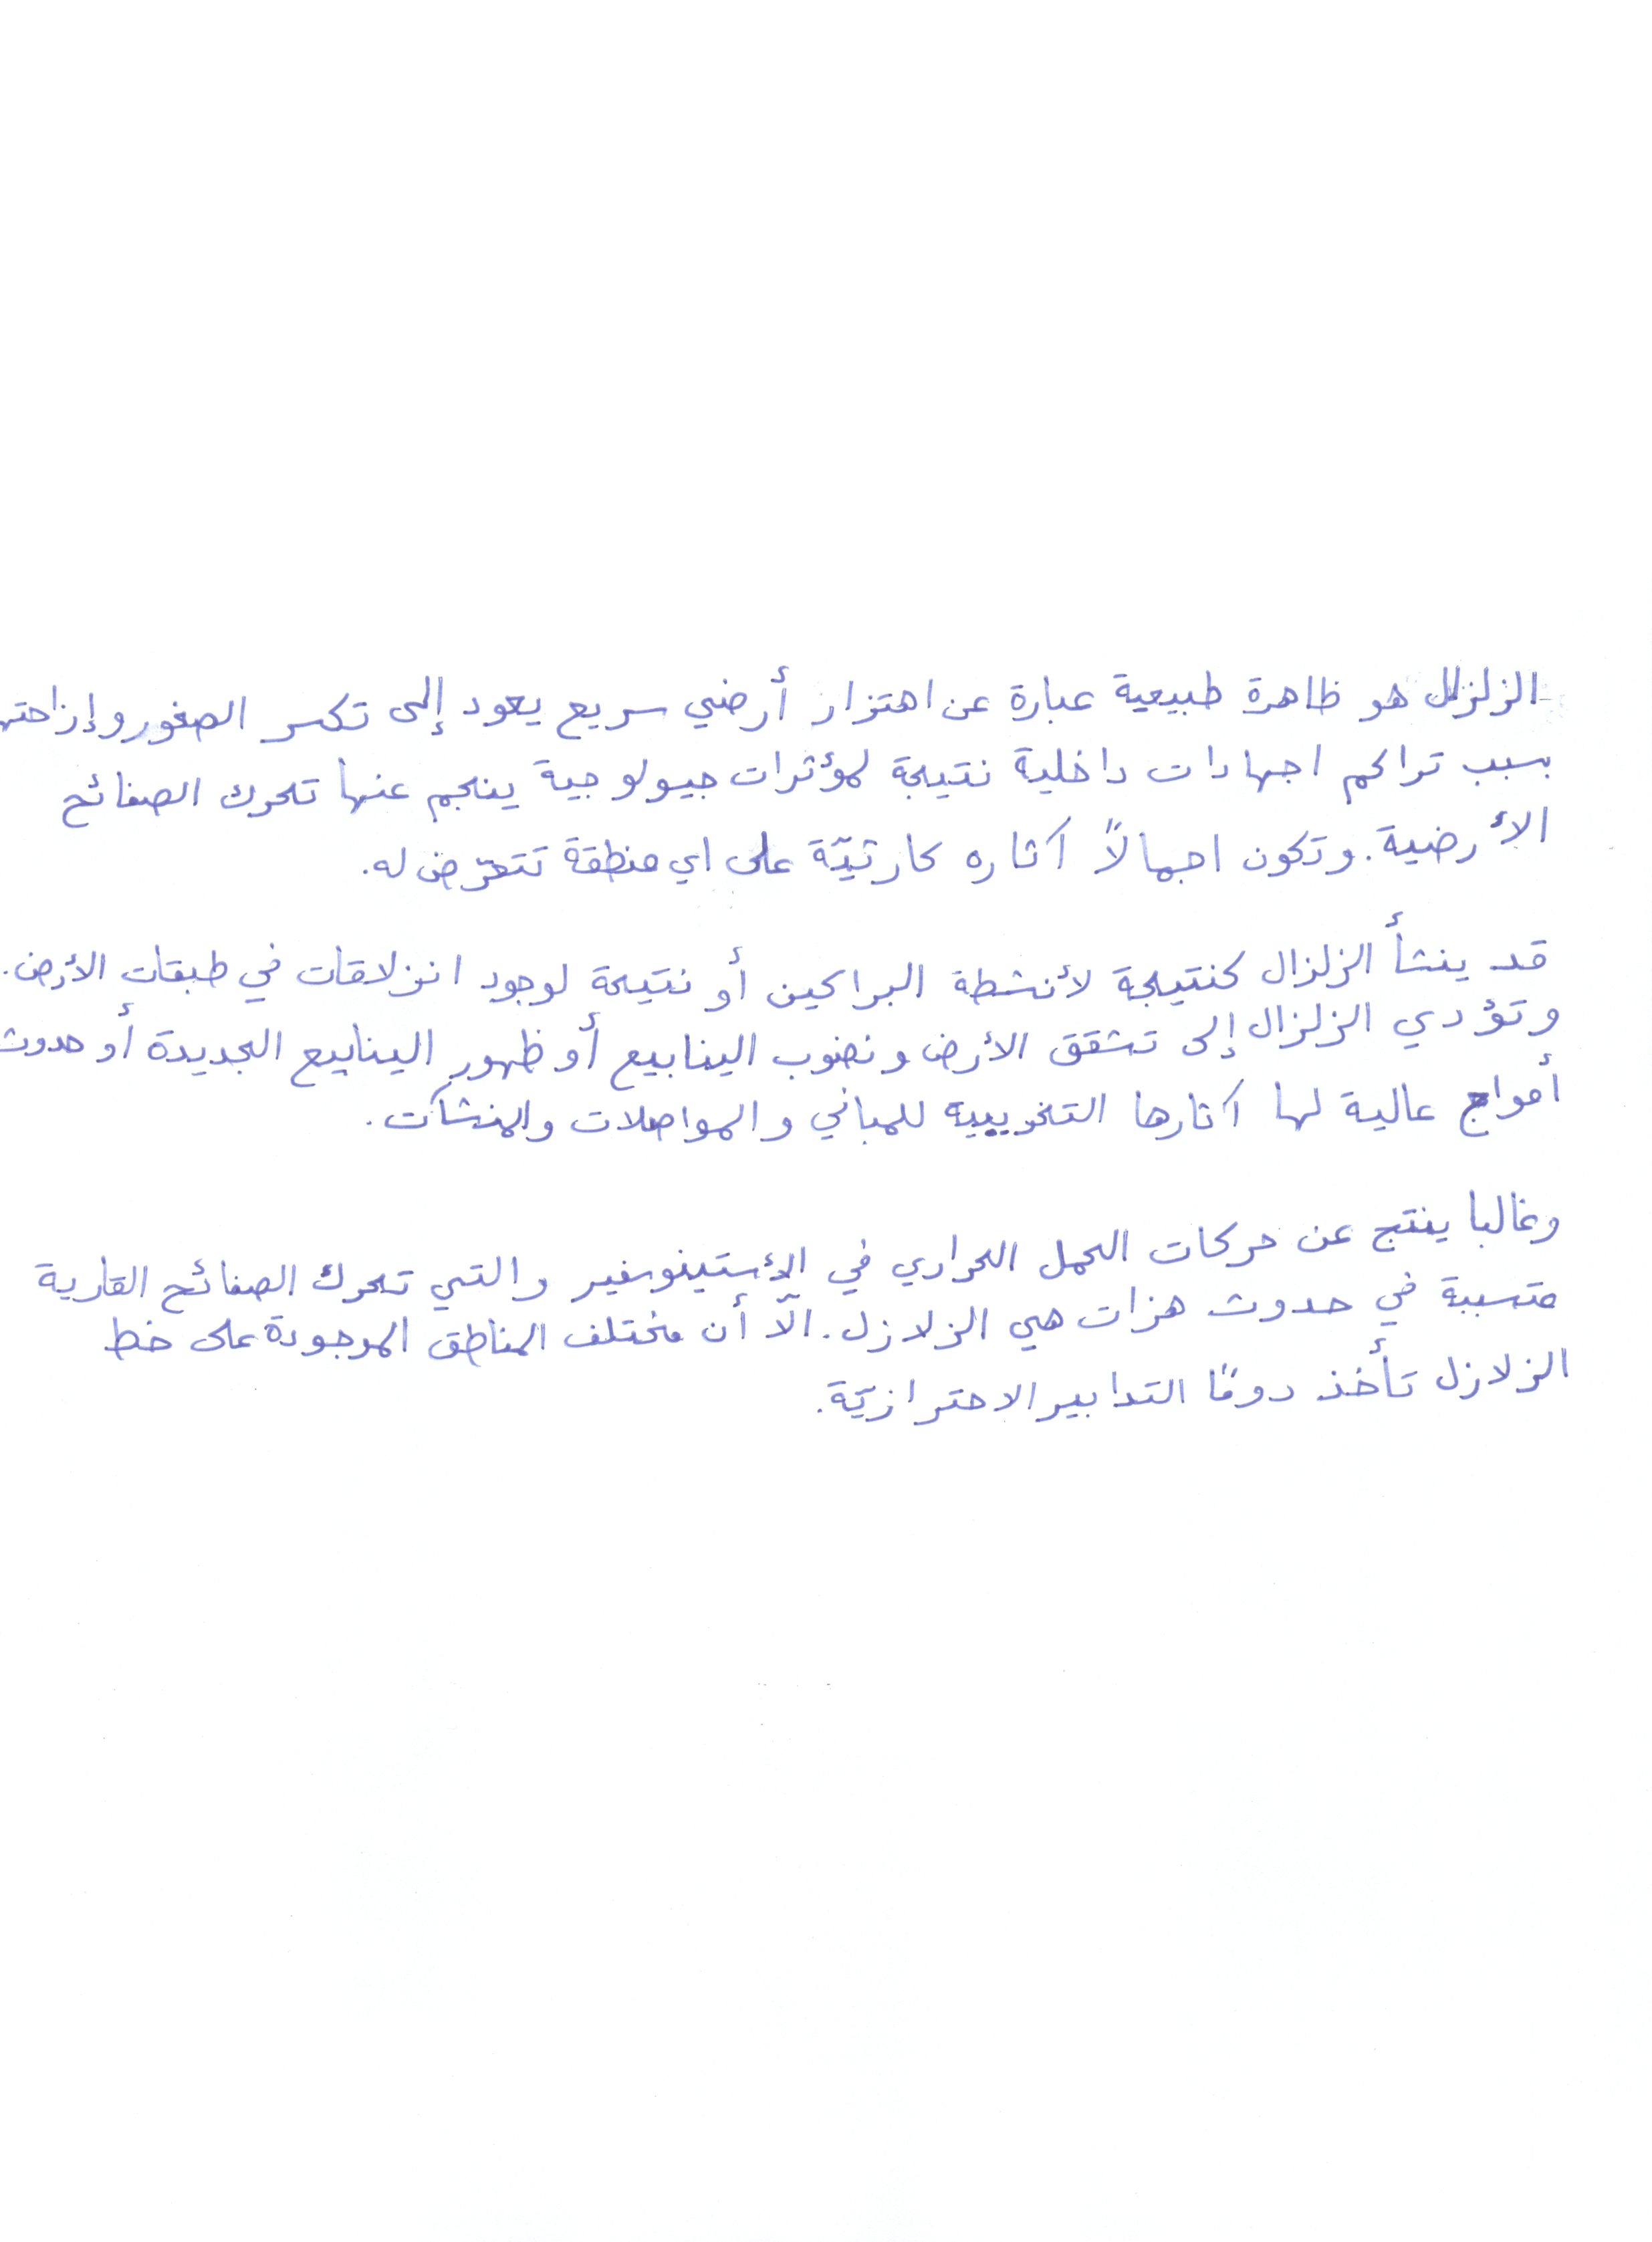 الزلزال هو ظاهرة طبيعية عبارة عن اهتزاز أرضي سريع يعود إلى تكسر الصخور وإزاحتها
بسبب تراكم اجهادات داخلية نتيجة لمؤثرات جيولوجية ينجم عنها تحرك الصفائح
الأرضية. وتكون اجمالاً آثاره كارثيّة على اي منطقة تتعرّض له.
قد ينشأ الزلزال كنتيجة لأنشطة البراكين أو نتيجة لوجود انزلاقات في طبقات الأرض.
وتؤدي الزلزال إلى تشقق الأرض ونضوب الينابيع أو ظهور الينابيع الجديدة أو حدوث
أمواج عالية لها آثارها التخريبية للمباني والمواصلات والمنشآت.
وغالبا ينتج عن حركات الحمل الحراري في الأستينوسفير والتي تحرك الصفائح القارية
متسببة في حدوث هزات هي الزلازل. الّا أن مختلف المناطق الموجودة على خط
الزلازل تأخذ دومًا التدابير الاحترازيّة.